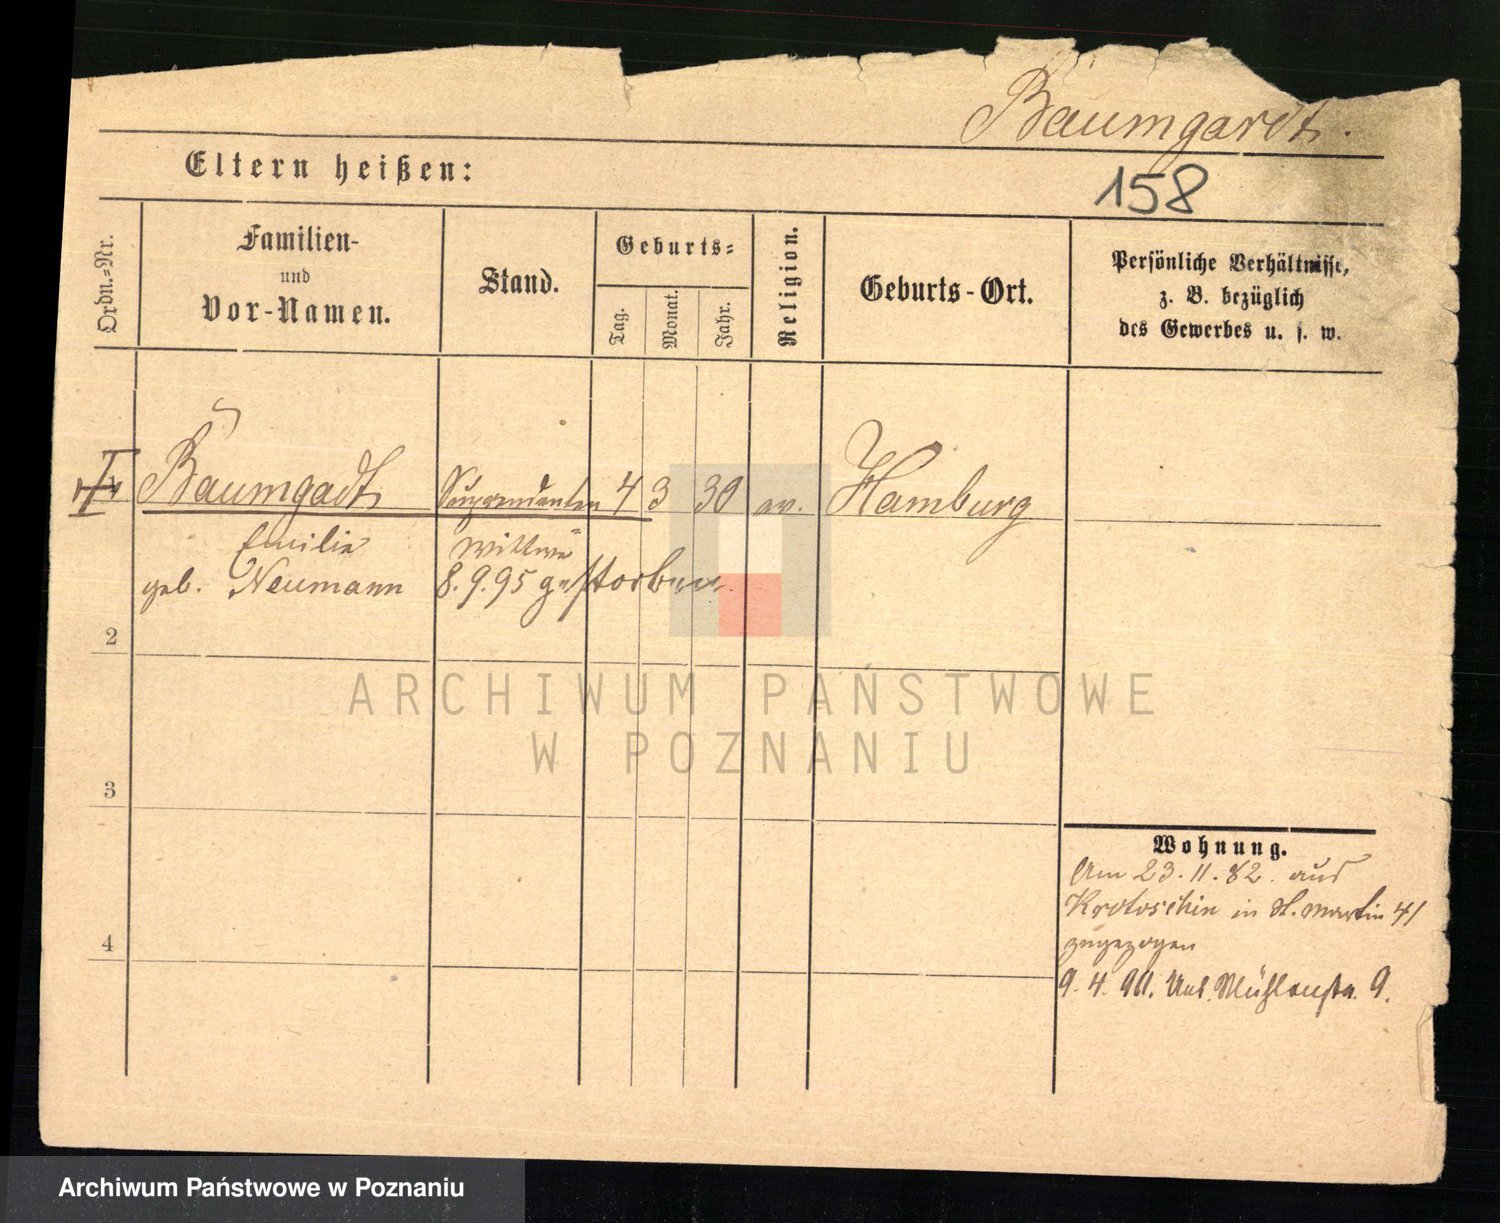 Baumgardt.
158
Eltern heißen:
Ordn.-Nr.
Familien-
und
Vor-Namen.
Stand.
Geburts-
Tag.
Monat.
Jahr.
Religion.
Geburts-Ort.
Persönliche Verhältnisse,
z. B. bezüglich
des Gewerbes u. s. w.
Baumgadt Superendenten 4 3 30 ev. Hamburg
Emilie Wittwe
geb. Neumann 8.9.95 gestorben.
2
3
4
Wohnung.
Am 23.11.82. aus
Krotoschin in St. Martin 41
zugezogen
9.4.90. Unt. Mühlenstr. 9.
ARCHIWUM PAŃSTWOWE
W POZNANIU
Archiwum Państwowe w Poznaniu